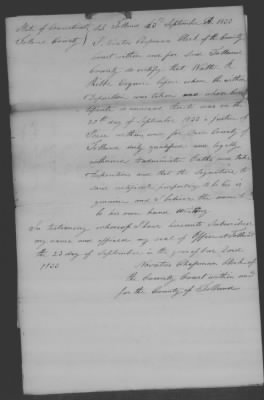 State of Connecticut ss. Tolland 23d September A. 1833
Tolland County
I, Novatus Chapman Clerk of the County
Court within and for said Tolland
County do certify that Waitte R.
Esquire before whom the within
deposition was taken and whose name
thereto was on the
20th day of September 1833 a Justice of
Peace within and for said County of
Tolland duly qualified and legally
authorised to administer Oaths and take
depositions and that the signature to
said purporting to be his is
genuine and I believe the same
to be his own hand Writing
In testimony whereof I have hereunto subscribed
my name and affixed my seal of Office at Tolland
the 23 day of September in the year of our Lord
1833
Novatus Chapman Clerk of
the County Court within and
for the County of Tolland